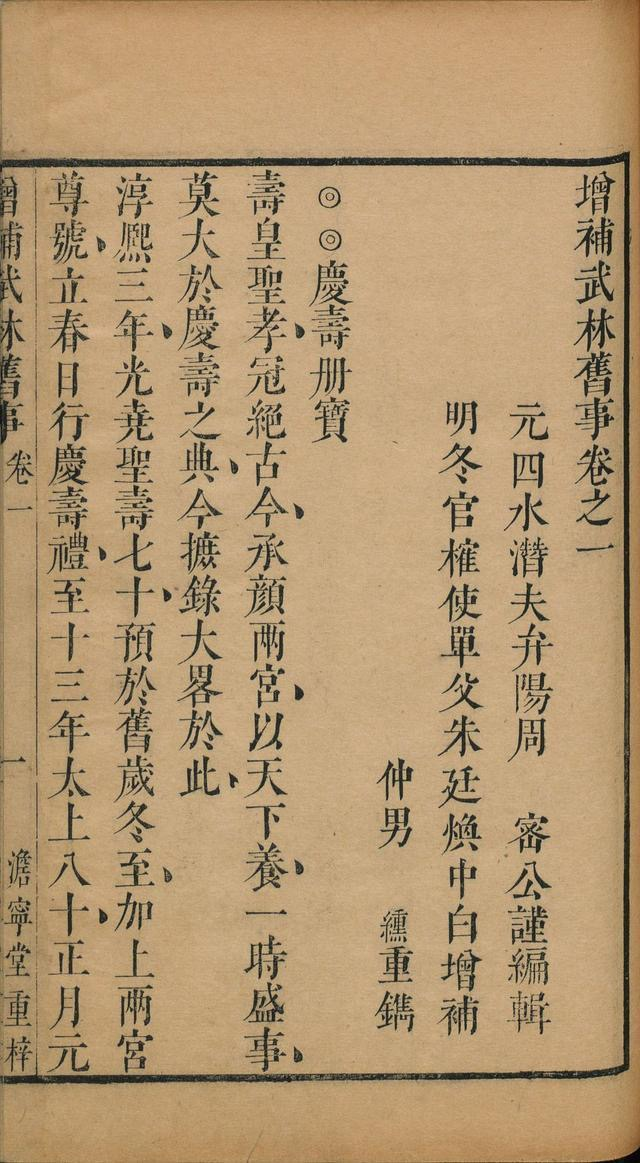 增補武林舊事卷之一
元四水潛夫弁陽周 密公謹編輯
明冬官榷使單父朱廷煥中白增補
仲男 纁重鐫
◎◎慶壽册寶
壽皇聖孝冠絕古今承顏兩宮以天下養一時盛事
莫大於慶壽之典今摭錄大畧於此
淳熙三年光堯聖壽七十預於舊歲冬至加上兩宮
尊號立春日行慶壽禮至十三年太上八十正月元
增補武林舊事 卷一 一 澹寧堂重梓